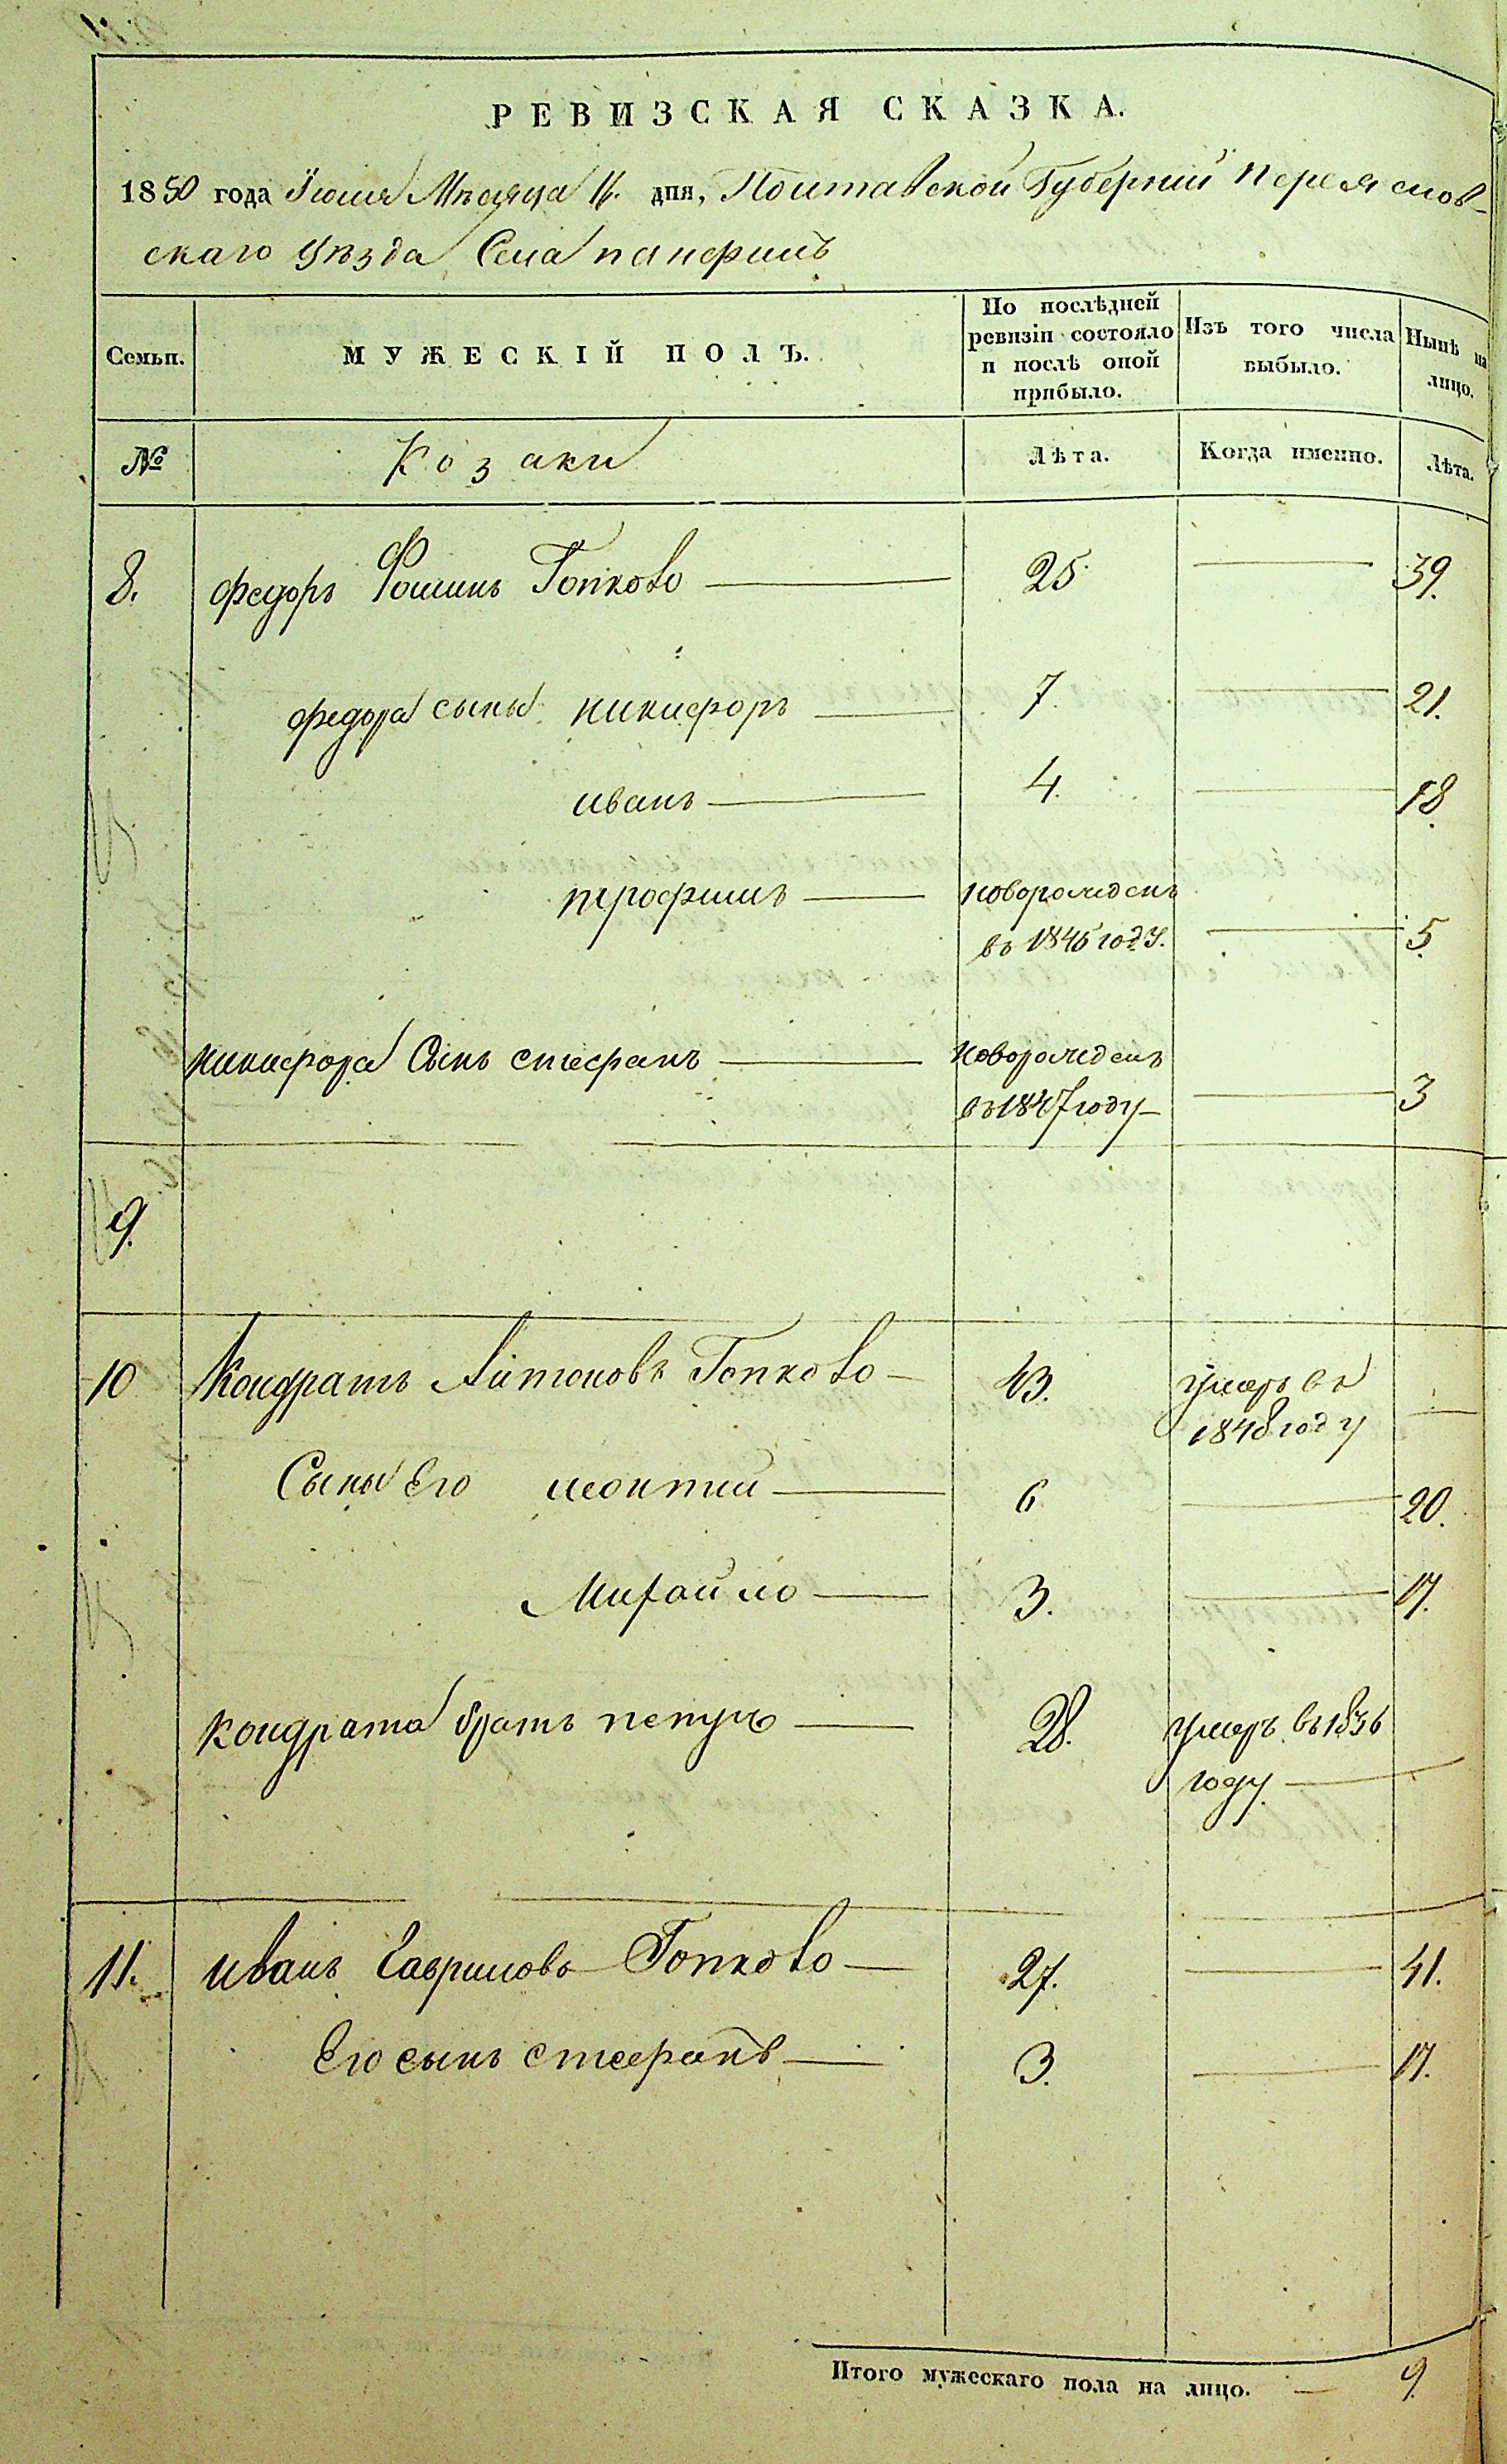 РЕВИЗСКАЯ СКАЗКА.
1850 года Іюля Мѣсяца 16. дня, Полтавской Губерніи Переяслов-
скаго Уѣзда Села панфилъ
Семьи.
МУЖЕСКІЙ ПОЛЪ.
По послѣдней
ревизіи состояло
и послѣ оной
прибыло.
Изъ того числа
выбыло.
Нынѣ на
лицо.
№
Козаки
Лѣта.
Когда именно.
Лѣта.
8. федоръ Фоминъ Гопкало 25 — 39.
федора сыны никифоръ 7. — 21.
иванъ 4. — 18.
трофимъ новорожденъ
въ 1845 году. — 5.
никифора Сынъ стефанъ новорожденъ
въ 1847 году — 3
9.
10 Кондратъ Антоновъ Гопкало 43. умеръ въ
1848 году —
Сыны Его леонтий 6 — 20.
Михайло 3. — 17.
кондрата братъ петръ 28. умеръ въ 1836
году —
11. иванъ Гавриловъ Гопкало 27. — 41.
Его сынъ стефанъ 3. — 17.
Итого мужескаго пола на лицо. — 9.